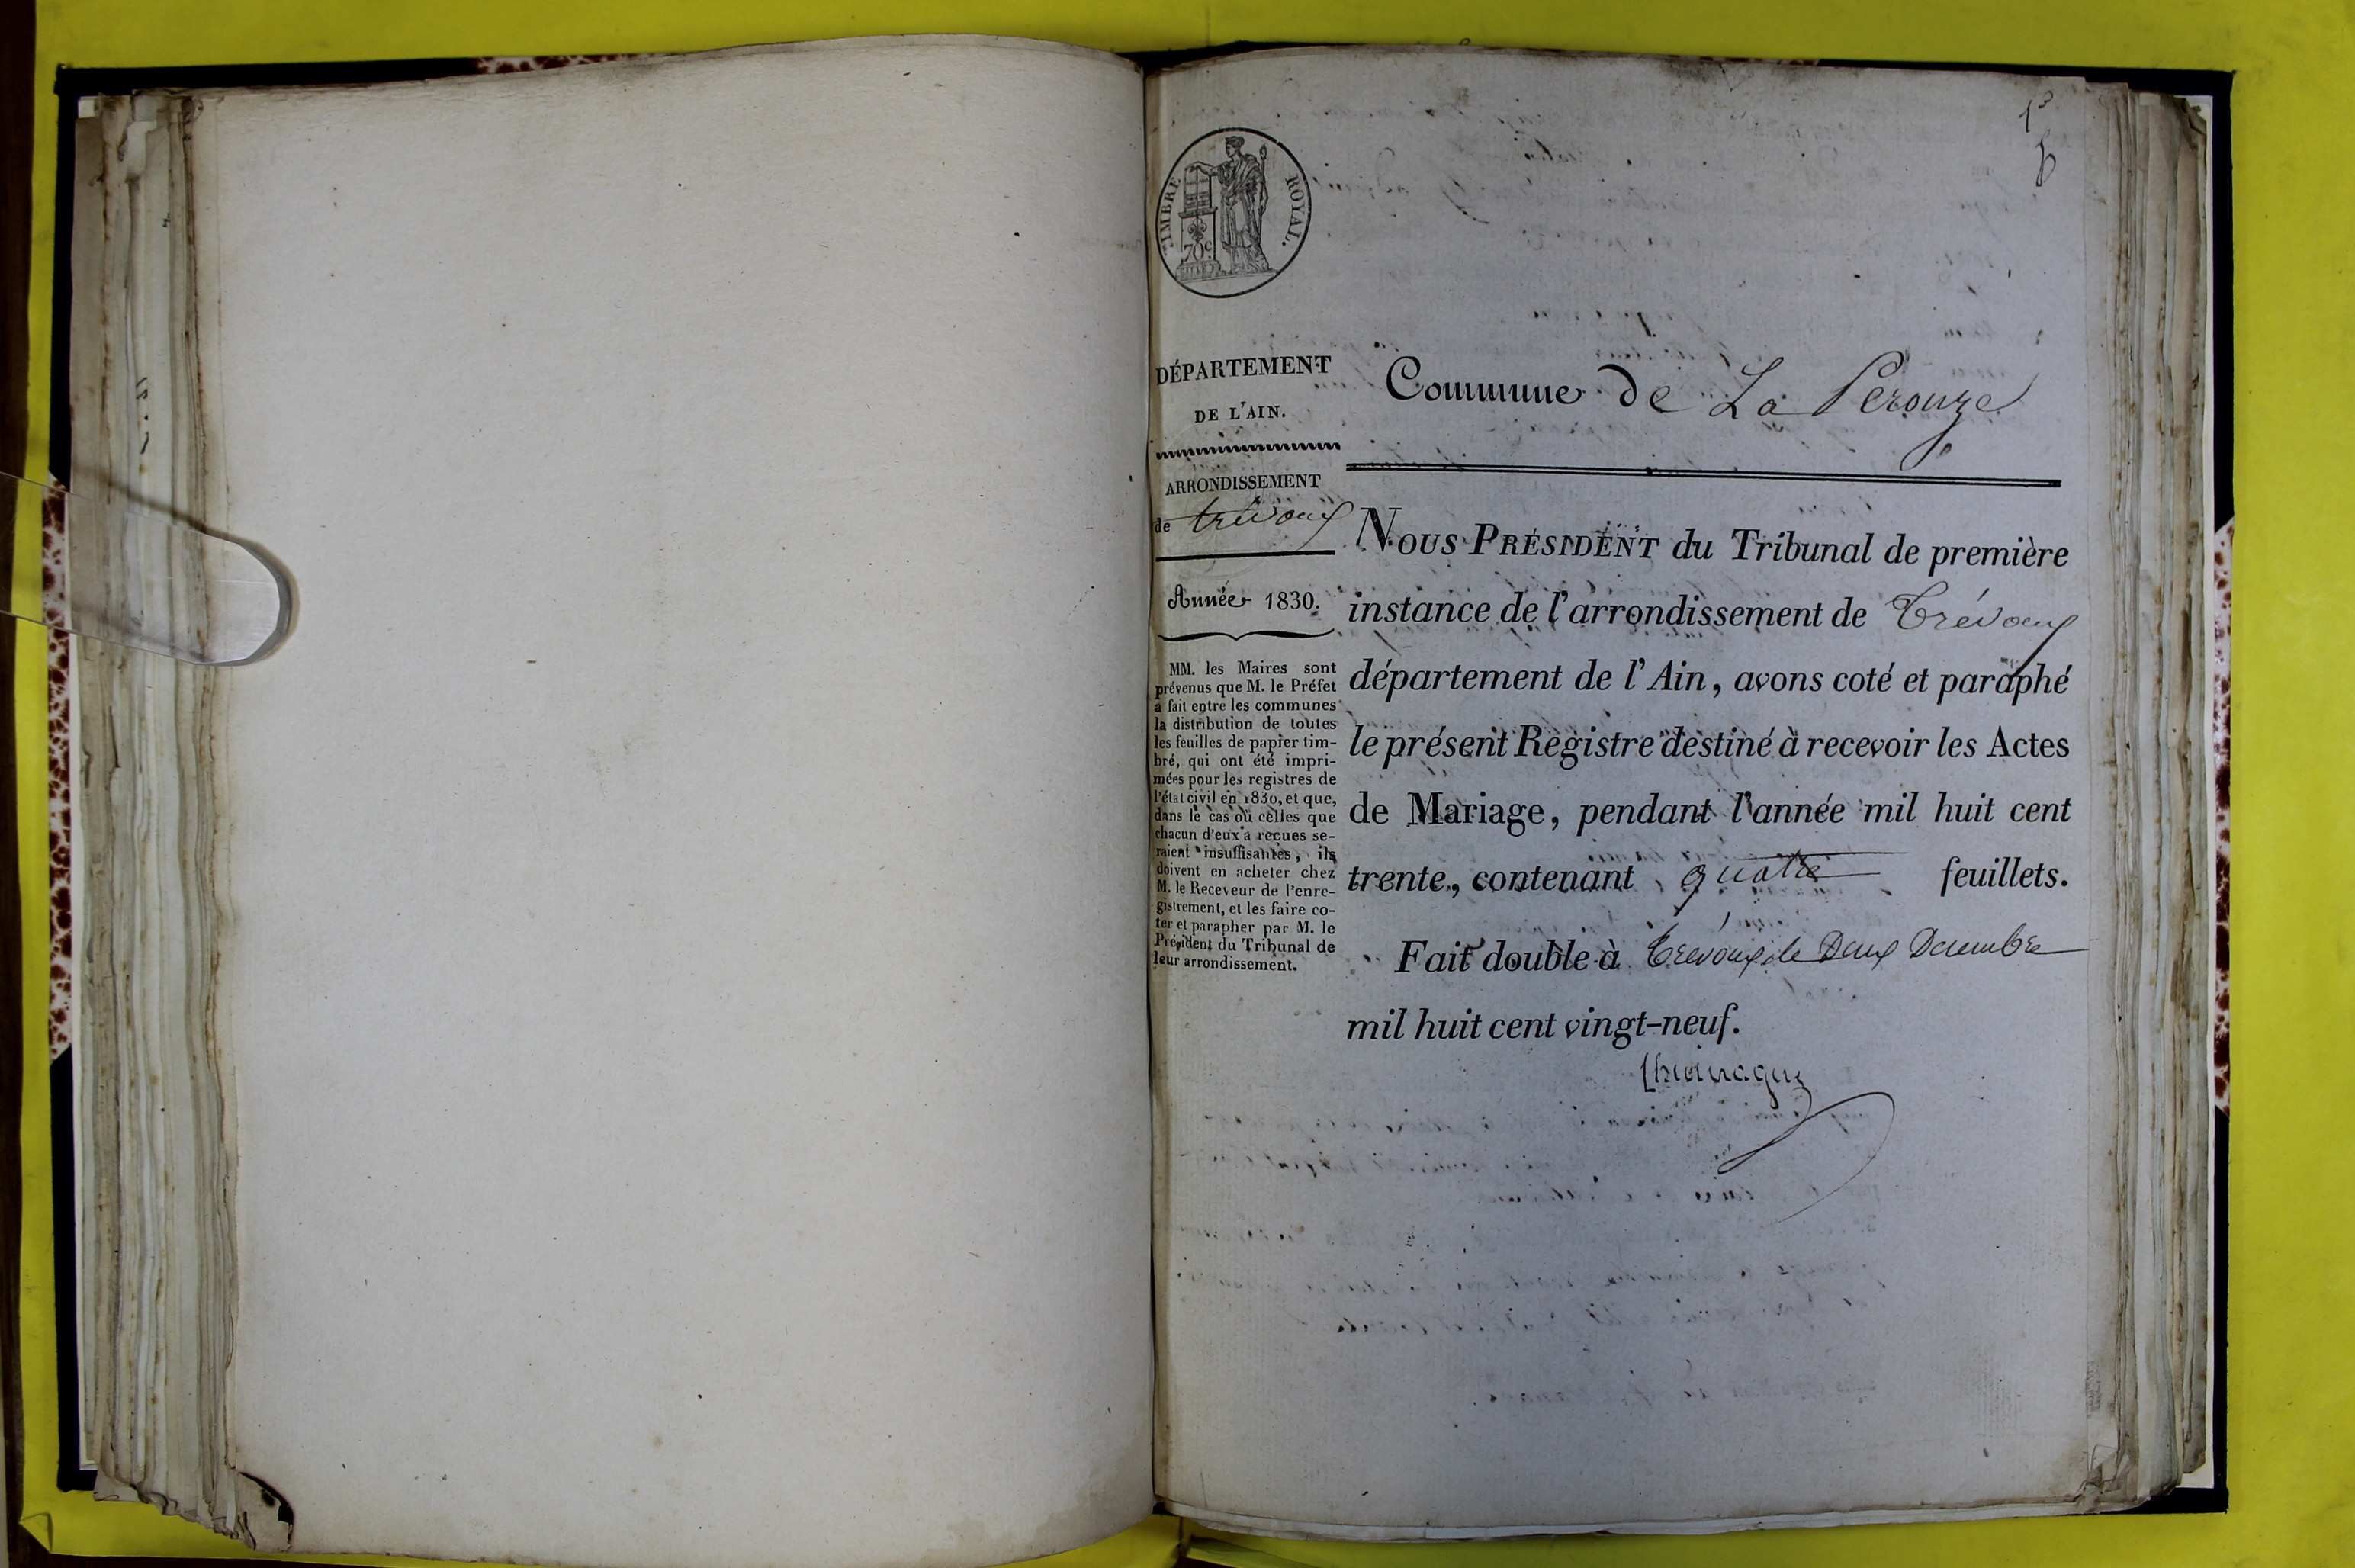 TIMBRE ROYAL.
70c
DÉPARTEMENT
DE L'AIN.
ARRONDISSEMENT
de trévoux
Année 1830.
MM. les Maires sont
prévenus que M. le Préfet
a fait entre les communes
la distribution de toutes
les feuilles de papier tim-
bré, qui ont été impri-
mées pour les registres de
l'état civil en 1830, et que,
dans le cas où celles que
chacun d'eux a reçues se-
raient insuffisantes, ils
doivent en acheter chez
M. le Receveur de l'enre-
gistrement, et les faire co-
ter et parapher par M. le
Président du Tribunal de
leur arrondissement.
Commune de La Perouze
NOUS PRÉSIDENT du Tribunal de première
instance de l'arrondissement de Trévoux
département de l'Ain, avons coté et paraphé
le présent Registre destiné à recevoir les Actes
de Mariage, pendant l'année mil huit cent
trente, contenant quatre feuillets.
Fait double à Trévoux, le Deux Decembre
mil huit cent vingt-neuf.